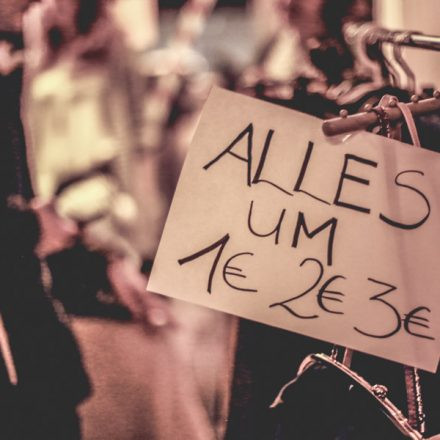 ALLES
UM
1€ 2€ 3€